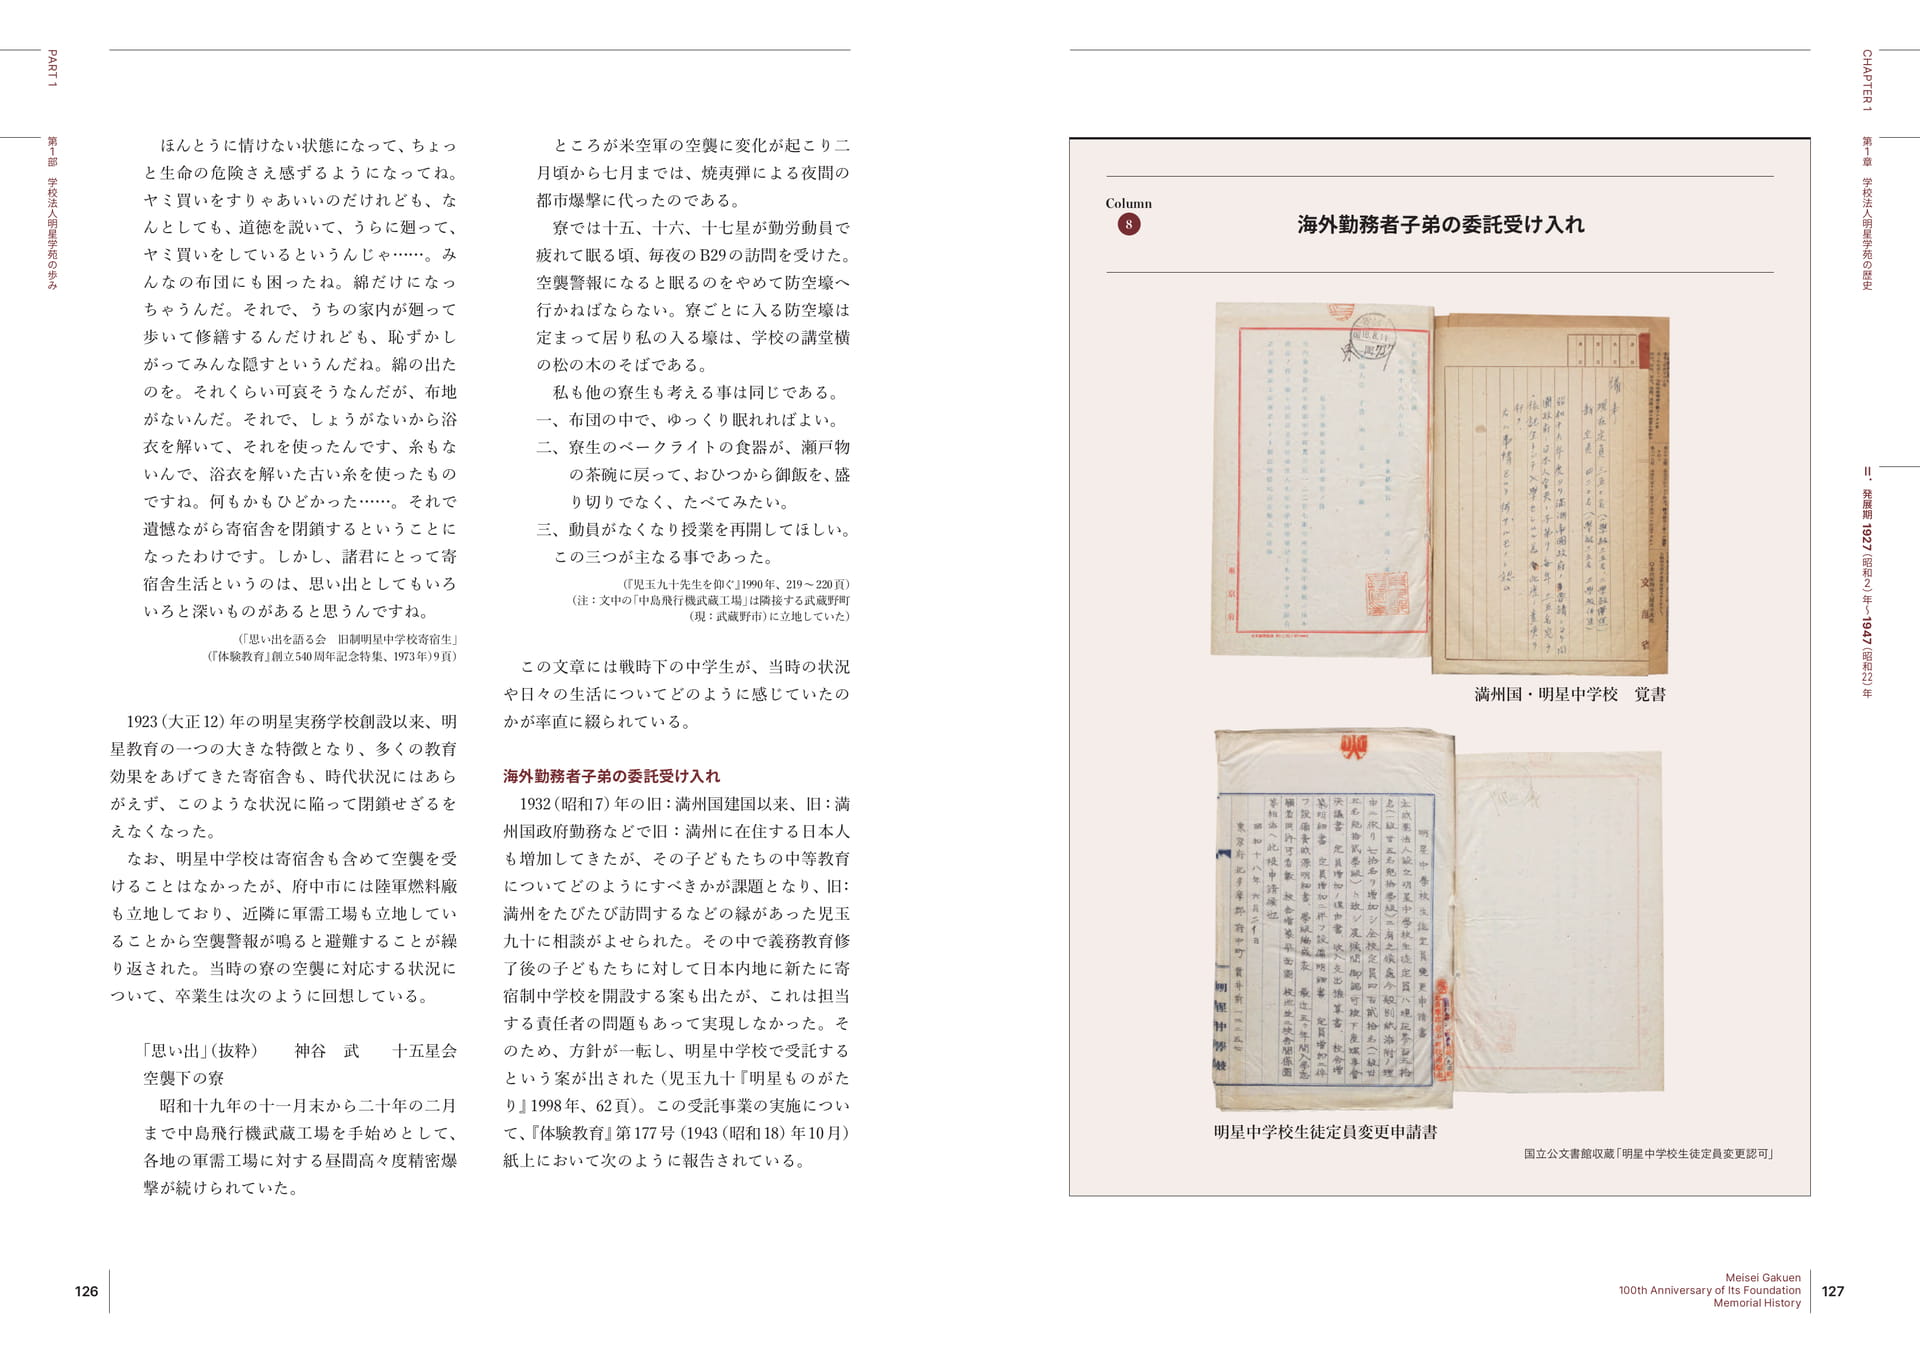 PART 1
第1部　学校法人明星学苑の歩み
ほんとうに情けない状態になって、ちょっ
と生命の危険さえ感ずるようになってね。
ヤミ買いをすりゃあいいのだけれども、な
んとしても、道徳を説いて、うらに廻って、
ヤミ買いをしているというんじゃ……。み
んなの布団にも困ったね。綿だけになっ
ちゃうんだ。それで、うちの家内が廻って
歩いて修繕するんだけれども、恥ずかし
がってみんな隠すというんだね。綿の出た
のを。それくらい可哀そうなんだが、布地
がないんだ。それで、しょうがないから浴
衣を解いて、それを使ったんです、糸もな
いんで、浴衣を解いた古い糸を使ったもの
ですね。何もかもひどかった……。それで
遺憾ながら寄宿舎を閉鎖するということに
なったわけです。しかし、諸君にとって寄
宿舎生活というのは、思い出としてもいろ
いろと深いものがあると思うんですね。
（「思い出を語る会　旧制明星中学校寄宿生」
（『体験教育』創立540周年記念特集、1973年）9頁）
1923（大正12）年の明星実務学校創設以来、明
星教育の一つの大きな特徴となり、多くの教育
効果をあげてきた寄宿舎も、時代状況にはあら
がえず、このような状況に陥って閉鎖せざるを
えなくなった。
なお、明星中学校は寄宿舎も含めて空襲を受
けることはなかったが、府中市には陸軍燃料廠
も立地しており、近隣に軍需工場も立地してい
ることから空襲警報が鳴ると避難することが繰
り返された。当時の寮の空襲に対応する状況に
ついて、卒業生は次のように回想している。
「思い出」（抜粋）　　神谷　武　　十五星会
空襲下の寮
昭和十九年の十一月末から二十年の二月
まで中島飛行機武蔵工場を手始めとして、
各地の軍需工場に対する昼間高々度精密爆
撃が続けられていた。
ところが米空軍の空襲に変化が起こり二
月頃から七月までは、焼夷弾による夜間の
都市爆撃に代ったのである。
寮では十五、十六、十七星が勤労動員で
疲れて眠る頃、毎夜のB29の訪問を受けた。
空襲警報になると眠るのをやめて防空壕へ
行かねばならない。寮ごとに入る防空壕は
定まって居り私の入る壕は、学校の講堂横
の松の木のそばである。
私も他の寮生も考える事は同じである。
一、布団の中で、ゆっくり眠れればよい。
二、寮生のベークライトの食器が、瀬戸物
の茶碗に戻って、おひつから御飯を、盛
り切りでなく、たべてみたい。
三、動員がなくなり授業を再開してほしい。
この三つが主なる事であった。
（『児玉九十先生を仰ぐ』1990年、219～220頁）
（注：文中の「中島飛行機武蔵工場」は隣接する武蔵野町
（現：武蔵野市）に立地していた）
この文章には戦時下の中学生が、当時の状況
や日々の生活についてどのように感じていたの
かが率直に綴られている。
海外勤務者子弟の委託受け入れ
1932（昭和7）年の旧：満州国建国以来、旧：満
州国政府勤務などで旧：満州に在住する日本人
も増加してきたが、その子どもたちの中等教育
についてどのようにすべきかが課題となり、旧：
満州をたびたび訪問するなどの縁があった児玉
九十に相談がよせられた。その中で義務教育修
了後の子どもたちに対して日本内地に新たに寄
宿制中学校を開設する案も出たが、これは担当
する責任者の問題もあって実現しなかった。そ
のため、方針が一転し、明星中学校で受託する
という案が出された（児玉九十『明星ものがた
り』1998年、62頁）。この受託事業の実施につい
て、『体験教育』第177号（1943（昭和18）年10月）
紙上において次のように報告されている。
126
CHAPTER 1
第1章　学校法人明星学苑の歴史
Ⅱ. 発展期 1927（昭和2）年～1947（昭和22）年
Column
8
海外勤務者子弟の委託受け入れ
満州国・明星中学校　覚書
明星中学校生徒定員変更申請書
国立公文書館収蔵「明星中学校生徒定員変更認可」
Meisei Gakuen
100th Anniversary of Its Foundation
Memorial History
127